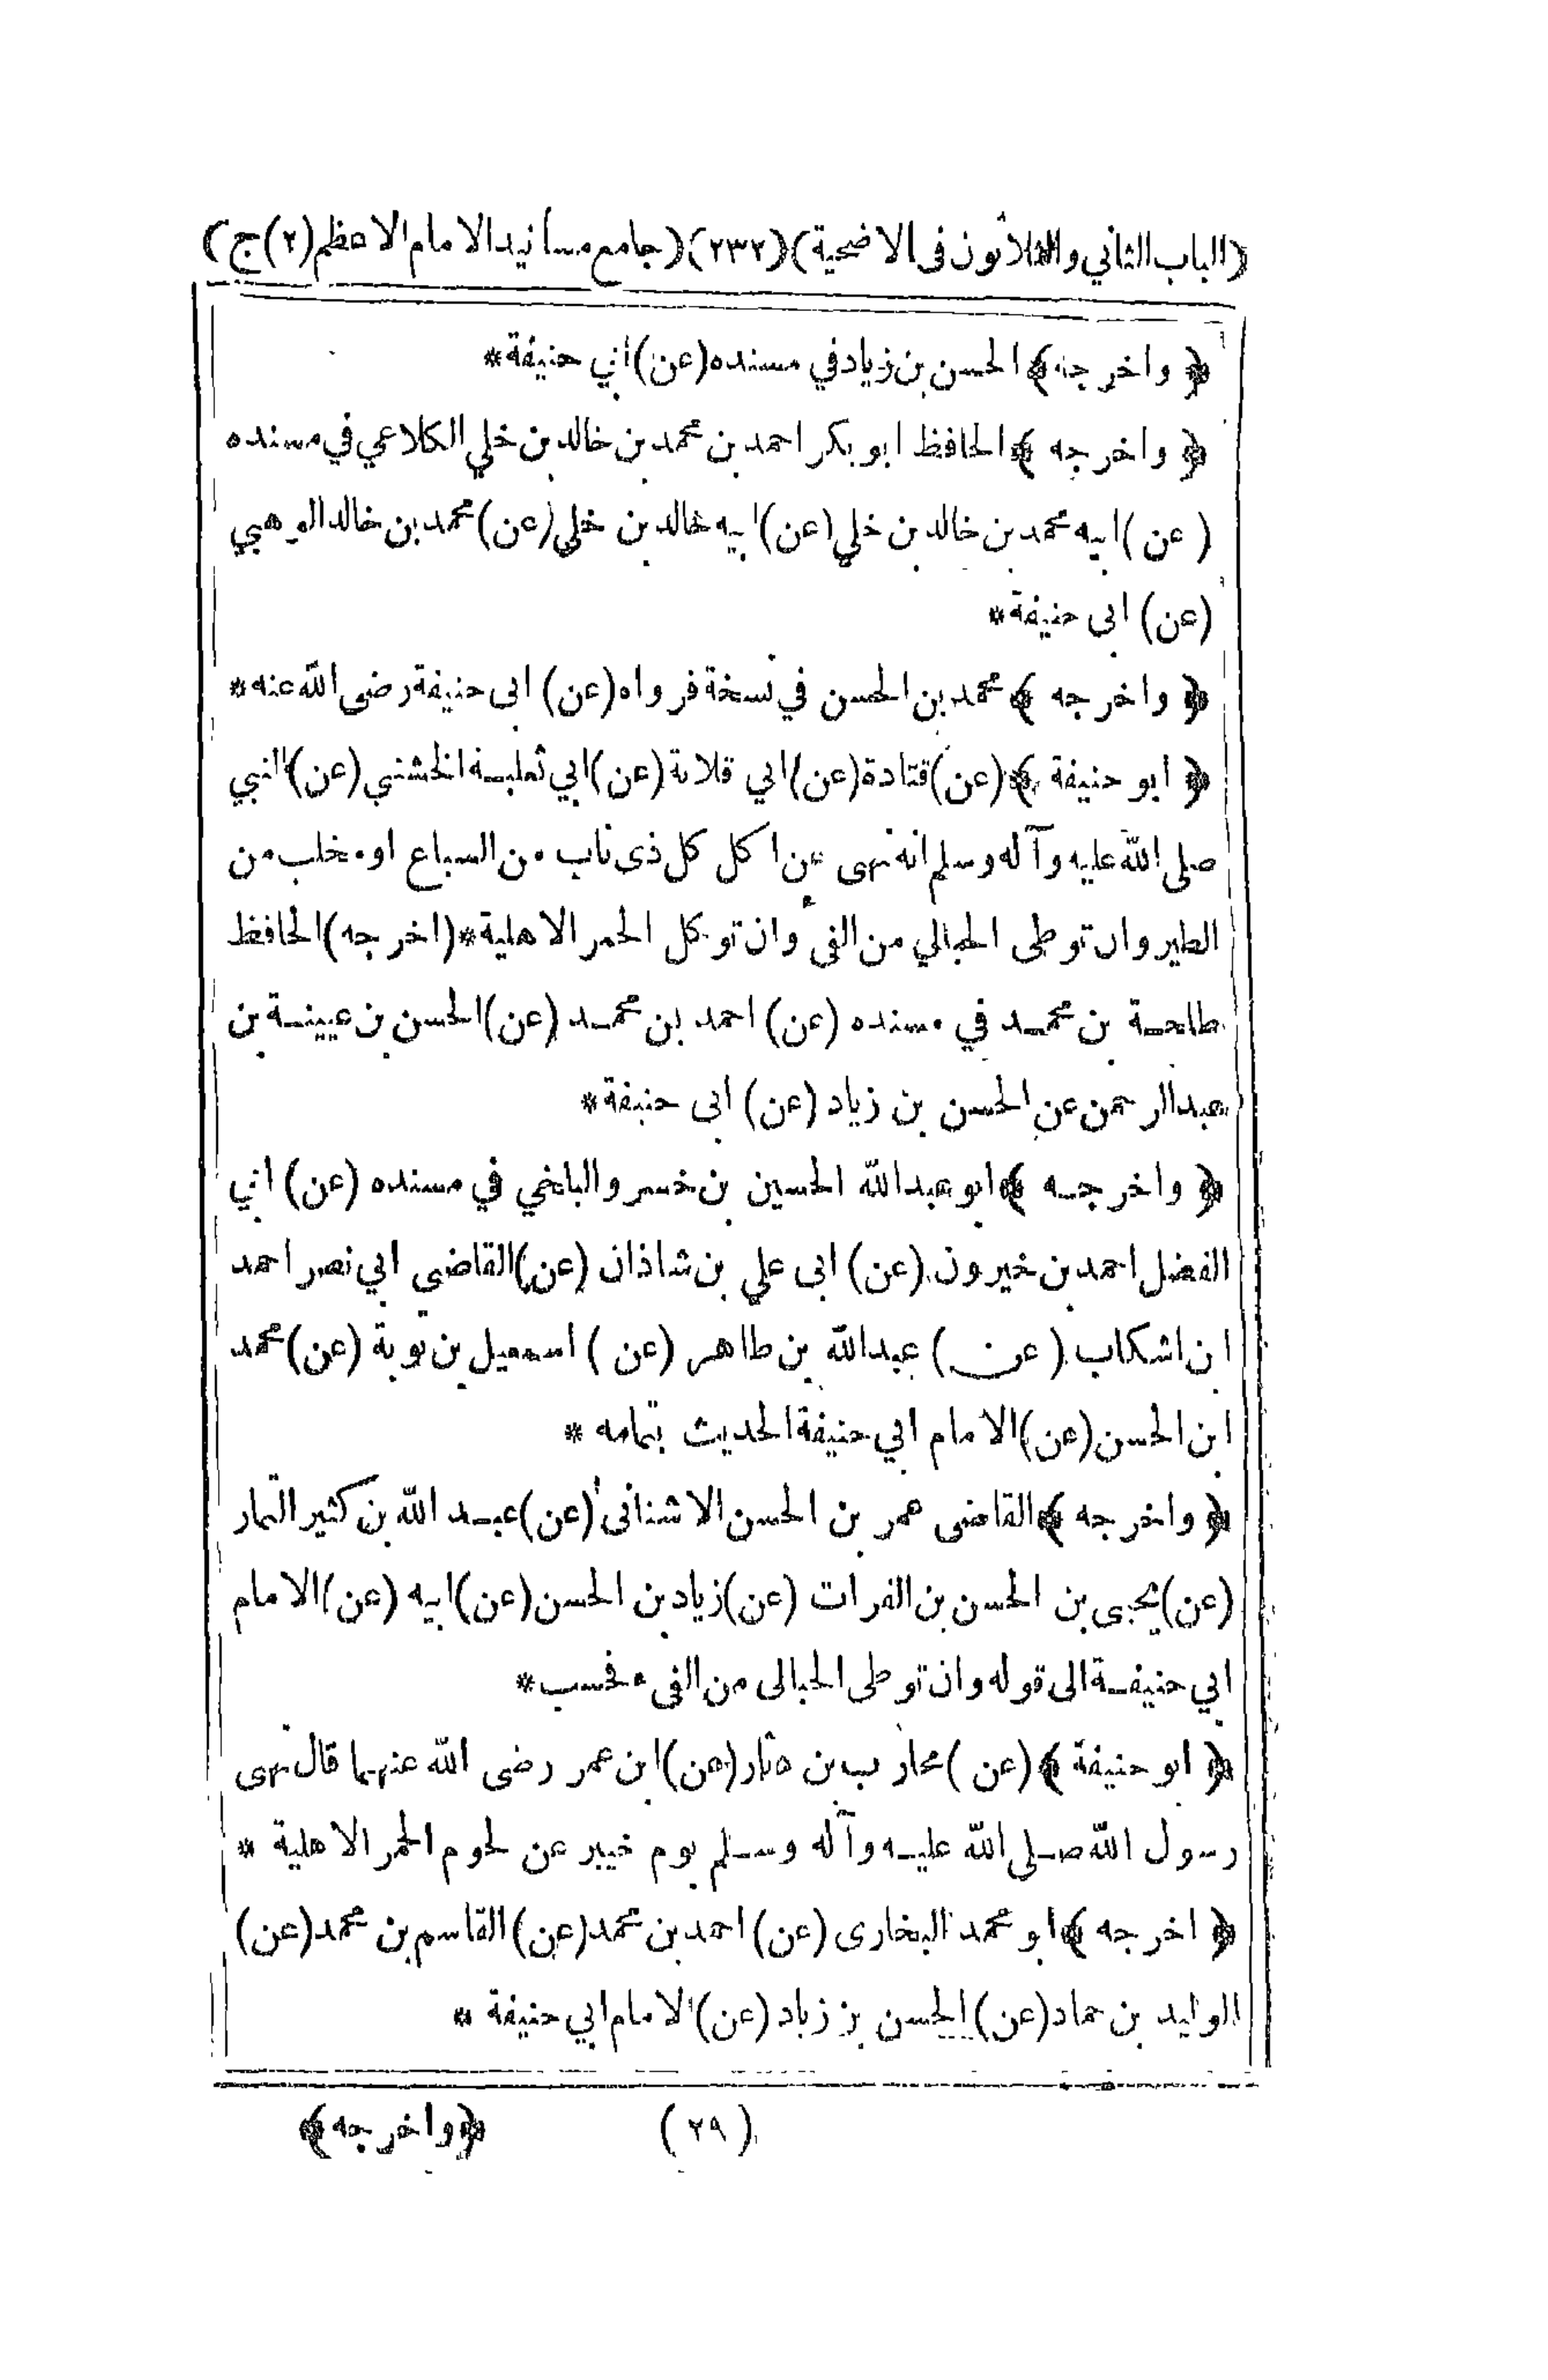 (الباب الثاني والثلاثون فى الاضحية) (٢٣٢) (جامع مسانيد الامام الاعظم (٢) ج)
﴿ واخرجه ﴾ الحسن بن زياد في مسنده (عن) أبي حنيفة *
﴿ واخرجه ﴾ الحافظ ابو بكر احمد بن محمد بن خالد بن خلي الكلاعي في مسنده
(عن) ابيه محمد بن خالد بن خلي (عن) ابيه خالد بن خلي (عن) محمد بن خالد الوهبي
(عن) ابى حنيفة *
﴿ واخرجه ﴾ محمد بن الحسن في نسخة فرواه (عن) ابى حنيفة رضى الله عنه *
﴿ ابو حنيفة ﴾ (عن) قتادة (عن) ابي قلابة (عن) ابي ثعلبة الخشني (عن) النبي
صلى الله عليه وآله وسلم انه نهى عن اكل كل ذى ناب من السباع او مخلب من
الطير وان توطى الحبالي من الفئ وان توكل الحمر الاهلية * (اخرجه) الحافظ
طلحة بن محمد في مسنده (عن) احمد بن محمد (عن) الحسن بن عيينة بن
عبدالرحمن عن الحسن بن زياد (عن) ابى حنيفة *
﴿ واخرجه ﴾ ابو عبدالله الحسين بن خسرو البلخي في مسنده (عن) ابي
الفضل احمد بن خيرون (عن) ابى علي بن شاذان (عن) القاضى ابي نصر احمد
ابن اشكاب (عن) عبدالله بن طاهر (عن) اسمعيل بن توبة (عن) محمد
ابن الحسن (عن) الامام ابي حنيفة الحديث بتمامه *
﴿ واخرجه ﴾ القاضى عمر بن الحسن الاشنانى (عن) عبد الله بن كثير التمار
(عن) يحيى بن الحسن بن الفرات (عن) زياد بن الحسن (عن) ابيه (عن) الامام
ابي حنيفة الى قوله وان توطى الحبالى من الفىء فحسب *
﴿ ابو حنيفة ﴾ (عن) محارب بن دثار (عن) ابن عمر رضى الله عنهما قال نهى
رسول الله صلى الله عليه وآله وسلم يوم خيبر عن لحوم الحمر الاهلية *
﴿ اخرجه ﴾ ابو محمد البخارى (عن) احمد بن محمد (عن) القاسم بن محمد (عن)
الوليد بن حماد (عن) الحسن بن زياد (عن) الامام ابي حنيفة *
(٢٩) ﴿واخرجه﴾